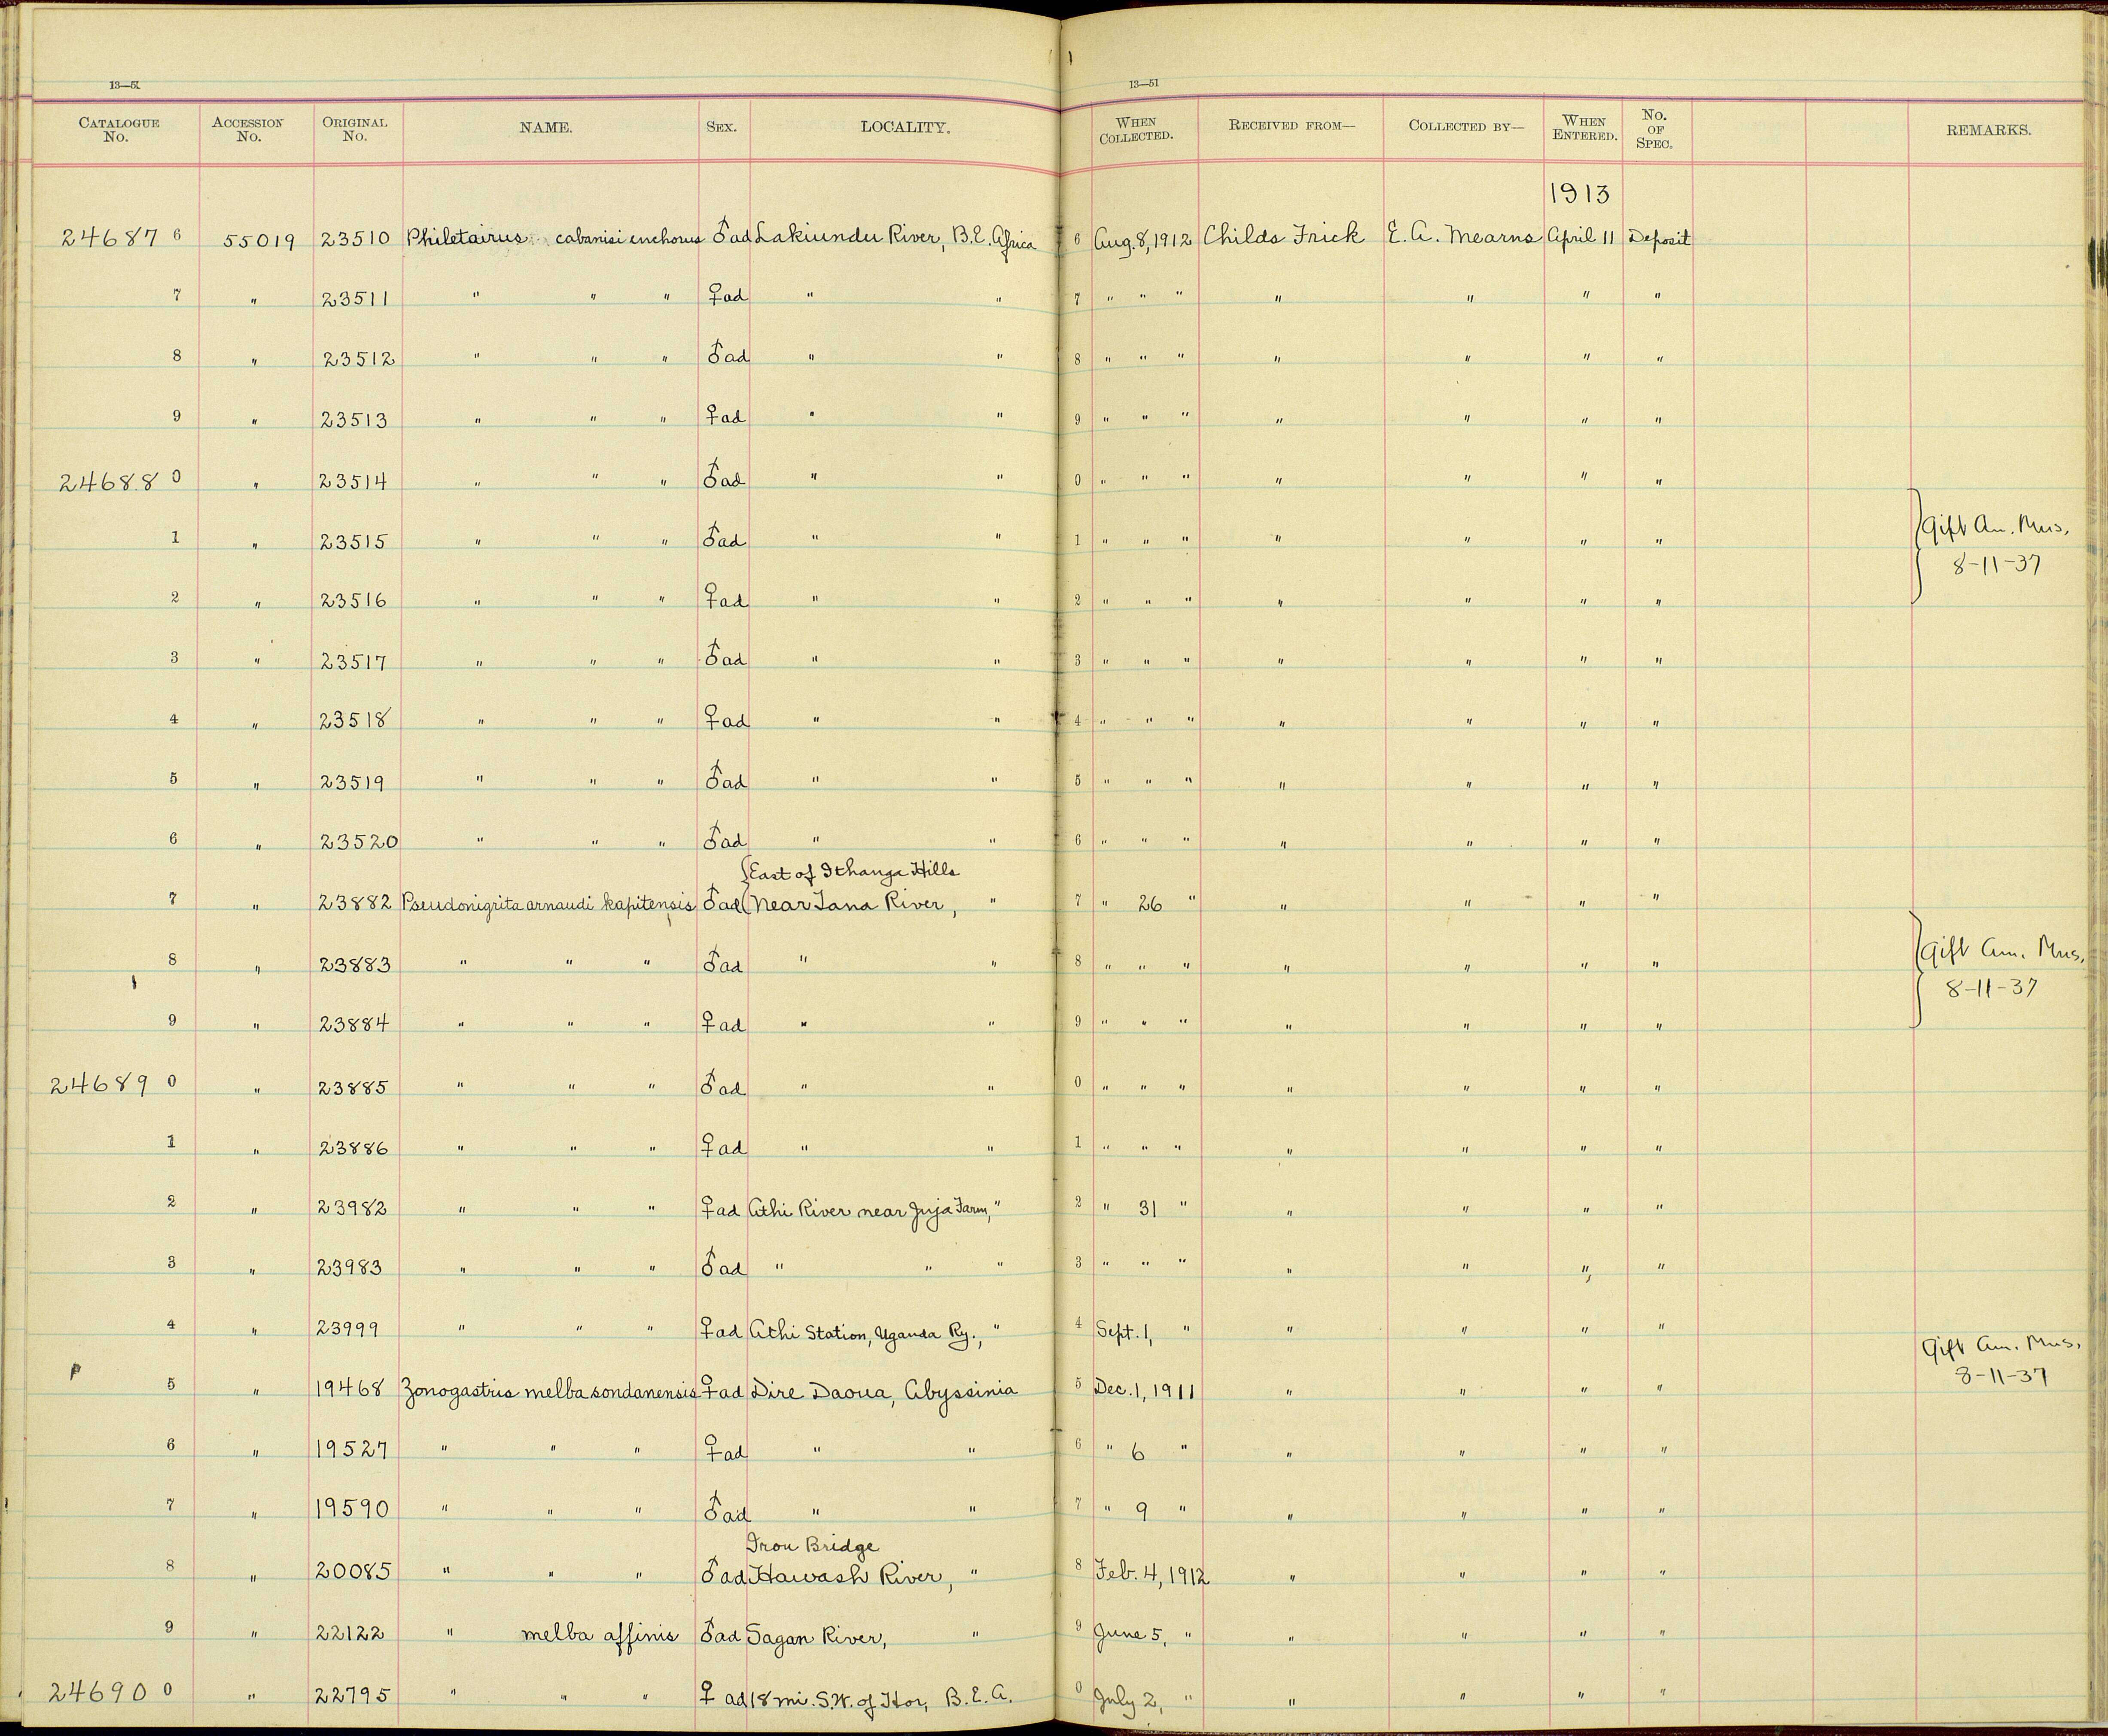 13—51 13—51
CATALOGUE No. ACCESSION No. ORIGINAL No. NAME. SEX. LOCALITY. WHEN COLLECTED. RECEIVED FROM— COLLECTED BY— WHEN ENTERED. No. OF SPEC. REMARKS.
1913
24687 6 55019 23510 Philetairus cabanisi enchorus ♂ad Lakiundu River, B.E. Africa 6 Aug. 8, 1912 Childs Frick E. A. Mearns April 11 Deposit
7 " 23511 " " " ♀ad " " 7 " " " " " " "
8 " 23512 " " " ♂ad " " 8 " " " " " " "
9 " 23513 " " " ♀ad " " 9 " " " " " " "
24688 0 " 23514 " " " ♂ad " " 0 " " " " " " "
1 " 23515 " " " ♂ad " " 1 " " " " " " " Gift Am. Mus.
8-11-37
2 " 23516 " " " ♀ad " " 2 " " " " " " "
3 " 23517 " " " ♂ad " " 3 " " " " " " "
4 " 23518 " " " ♀ad " " 4 " " " " " " "
5 " 23519 " " " ♂ad " " 5 " " " " " " "
6 " 23520 " " " ♂ad " " 6 " " " " " " "
East of Ithanga Hills
7 " 23882 Pseudonigrita arnaudi kapitensis ♂ad Near Tana River, " 7 " 26 " " " " "
8 " 23883 " " " ♂ad " " 8 " " " " " " " Gift Am. Mus.
8-11-37
9 " 23884 " " " ♀ad " " 9 " " " " " " "
24689 0 " 23885 " " " ♂ad " " 0 " " " " " " "
1 " 23886 " " " ♀ad " " 1 " " " " " " "
2 " 23982 " " " ♀ad Athi River near Juja Farm, " 2 " 31 " " " " "
3 " 23983 " " " ♂ad " " " 3 " " " " " " "
4 " 23999 " " " ♀ad Athi Station, Uganda Ry., " 4 Sept. 1, " " " " "
Gift Am. Mus.
5 " 19468 Zonogastris melba sondanensis ♀ad Dire Daoua, Abyssinia 5 Dec. 1, 1911 " " " " 8-11-37
6 " 19527 " " " ♀ad " " 6 " 6 " " " " "
7 " 19590 " " " ♂ad " " 7 " 9 " " " " "
Iron Bridge
8 " 20085 " " " ♂ad Hawash River, " 8 Feb. 4, 1912 " " " "
9 " 22122 " melba affinis ♂ad Sagan River, " 9 June 5, " " " " "
24690 0 " 22795 " " " ♀ ad 18 mi. S.W. of Hor, B.E.A. 0 July 2, " " " " "